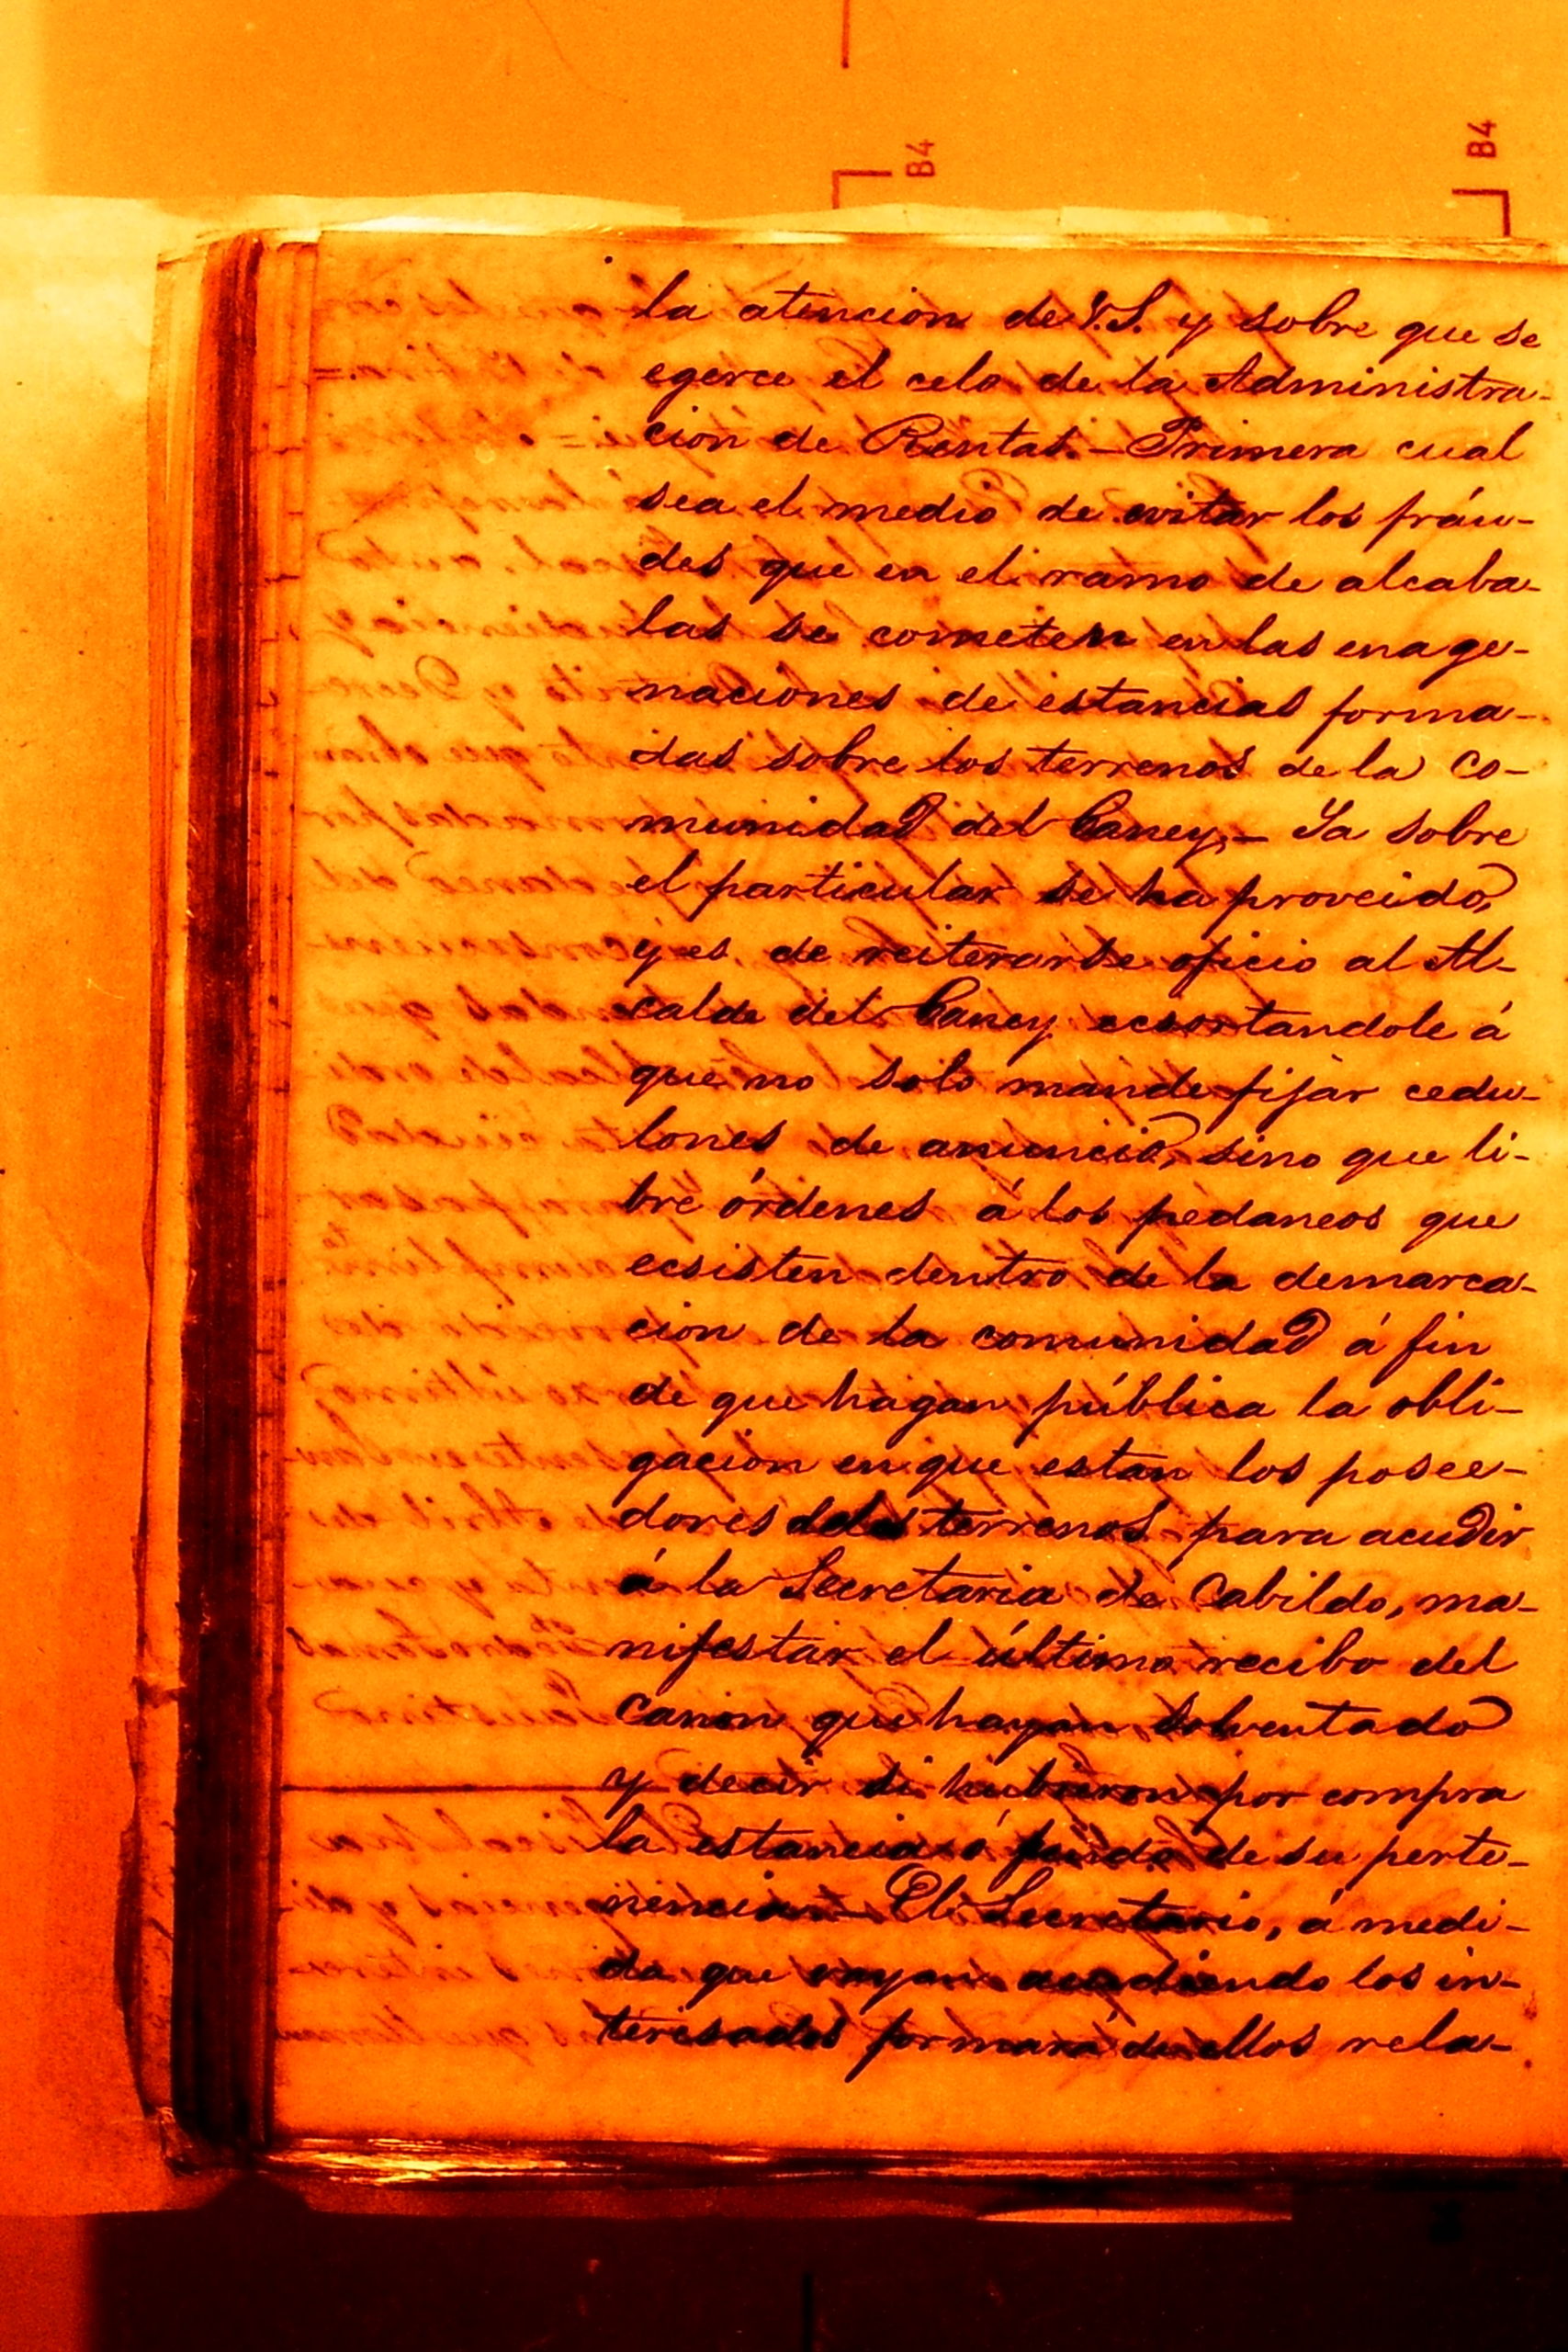 B4
B4
la atencion de V.S. y sobre que se
egerce el celo de la Administra-
cion de Rentas.- Primera cual
sea el medio de evitar los fráu-
des que en el ramo de alcaba-
las se cometen en las enage-
naciones de estancias forma-
das sobre los terrenos de la co-
munidad del Caney.- Ya sobre
el particular se ha proveido,
y es de reiterarse oficio al Al-
calde del Caney ecsortandole á
que no solo mande fijar cedu-
lones de anuncio, sino que li-
bre órdenes á los pedaneos que
ecsisten dentro de la demarca-
cion de la comunidad á fin
de que hagan pública la obli-
gacion en que estan los posee-
dores de los terrenos para acudir
á la Secretaria de Cabildo, ma-
nifestar el último recibo del
canon que hayan solventado
y decir si hubieron por compra
la estancia ó fundo de su perte-
nencia.- El Secretario, á medi-
da que vayan acudiendo los in-
teresados formará de ellos rela-